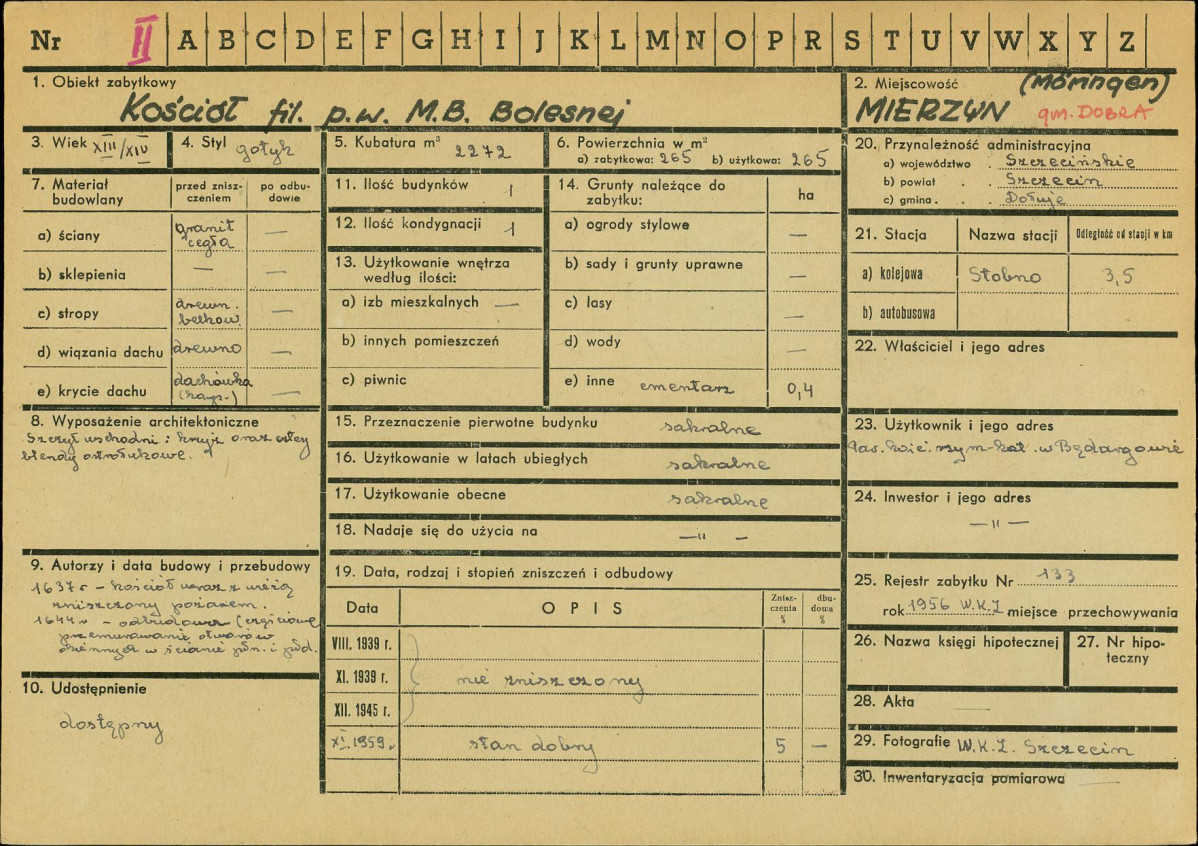 Nr II A B C D E F G H I J K L M N O P R S T U V W X Y Z
1. Obiekt zabytkowy
Kościół fil. p.w. M.B. Bolesnej
2. Miejscowość (Möringen)
MIERZYN gm. DOBRA
3. Wiek XIII/XIV
4. Styl gotyk
5. Kubatura m³ 2272
6. Powierzchnia w m²
a) zabytkowa: 265 b) użytkowa: 265
7. Materiał budowlany
przed zniszczeniem
po odbudowie
a) ściany granit cegła —
b) sklepienia — —
c) stropy drewn. belkow. —
d) wiązania dachu drewno —
e) krycie dachu dachówka —
8. Wyposażenie architektoniczne
Szczyt wschodni: krzyż oraz
blendy ostrołukowe.
9. Autorzy i data budowy i przebudowy
1637 r – kościół wraz z wieżą
zniszczony pożarem.
1644 r – odbudowa (częściowe
przemurowanie otworów
okiennych w ścianie płn. i płd.
10. Udostępnienie
dostępny
11. Ilość budynków 1
12. Ilość kondygnacji 1
13. Użytkowanie wnętrza
według ilości:
a) izb mieszkalnych —
b) innych pomieszczeń
c) piwnic
14. Grunty należące do
zabytku: ha
a) ogrody stylowe —
b) sady i grunty uprawne —
c) lasy
d) wody —
e) inne cmentarz 0,4
15. Przeznaczenie pierwotne budynku sakralne
16. Użytkowanie w latach ubiegłych sakralne
17. Użytkowanie obecne sakralne
18. Nadaje się do użycia na —„—
19. Data, rodzaj i stopień zniszczeń i odbudowy
Data OPIS Zniszczenia % dbudowa %
VIII. 1939 r.
XI. 1939 r. nie zniszczony
XII. 1945 r.
XI. 1959 r stan dobry 5 —
20. Przynależność administracyjna
a) województwo Szczecińskie
b) powiat Szczecin
c) gmina Dołuje
21. Stacja Nazwa stacji Odległość od stacji w km
a) kolejowa Stobno 3,5
b) autobusowa
22. Właściciel i jego adres
23. Użytkownik i jego adres
Par. kość. rzym-kat. w Będargowie
24. Inwestor i jego adres
—„—
25. Rejestr zabytku Nr 133
rok 1956 W.K.Z miejsce przechowywania
26. Nazwa księgi hipotecznej
27. Nr hipoteczny
28. Akta —
29. Fotografie W.K.Z. Szczecin
30. Inwentaryzacja pomiarowa —